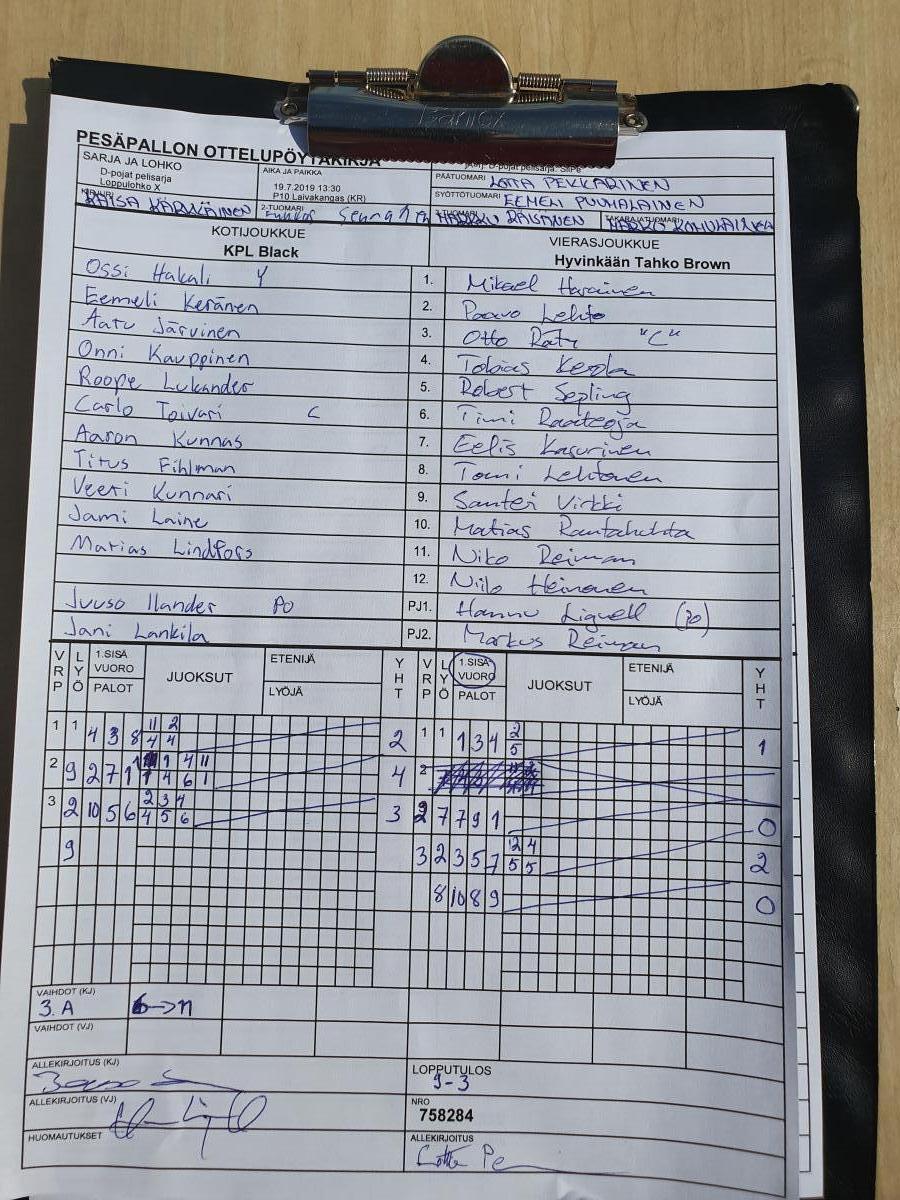 Bantex
PESÄPALLON OTTELUPÖYTÄKIRJA
SARJA JA LOHKO
D-pojat pelisarja
Loppulohko X
AIKA JA PAIKKA
19.7.2019 13:30
P10 Laivakangas (KR)
D-pojat pelisarja. SiiPe
PÄÄTUOMARI LOTTA PEKKARINEN
SYÖTTÖTUOMARI EEMELI PUUMALAINEN
KAISA KÄRKKÄINEN
2-TUOMARI
MARKKU RÄISÄNEN
TAKARAJATUOMARI
KOTIJOUKKUE
KPL Black
VIERASJOUKKUE
Hyvinkään Tahko Brown
Ossi Hakali Y 1. Mikael
Eemeli Keränen 2. Paavo Lehto
Aatu Järvinen 3. Otto Räty "C"
Onni Kauppinen 4. Tobias Kerola
Roope Lukander 5. Robert Sepling
Carlo Toivari C 6. Timi Raateoja
Aaron Kunnas 7. Eelis Kasurinen
Titus Fihlman 8. Tomi Lehtonen
Veeti Kunnari 9. Santeri Virkki
Jami Laine 10. Matias Rantahuhta
Matias Lindfors 11. Niko Reiman
12. Niilo Heinonen
Juuso Ilander PO PJ1. Hannu Lignell (PO)
Jani Lankila PJ2. Markus Reiman
VRP LYÖ 1.SISÄ VUORO PALOT JUOKSUT ETENIJÄ LYÖJÄ YHT
VRP LYÖ 1.SISÄ VUORO PALOT JUOKSUT ETENIJÄ LYÖJÄ YHT
1 1 4 3 8 11 2 2 1 1 1 3 4 2 1
4 4 5
2 9 2 7 1 1 4 11 4 2
4 6 1
3 2 10 5 6 2 3 4 3 2 7 7 9 1 0
4 5 6
9 3 2 3 5 7 12 4 2
5 5
8 10 8 9 0
VAIHDOT (KJ)
3. A 6->11
VAIHDOT (VJ)
ALLEKIRJOITUS (KJ)
LOPPUTULOS
9-3
ALLEKIRJOITUS (VJ)
NRO
758284
HUOMAUTUKSET
ALLEKIRJOITUS